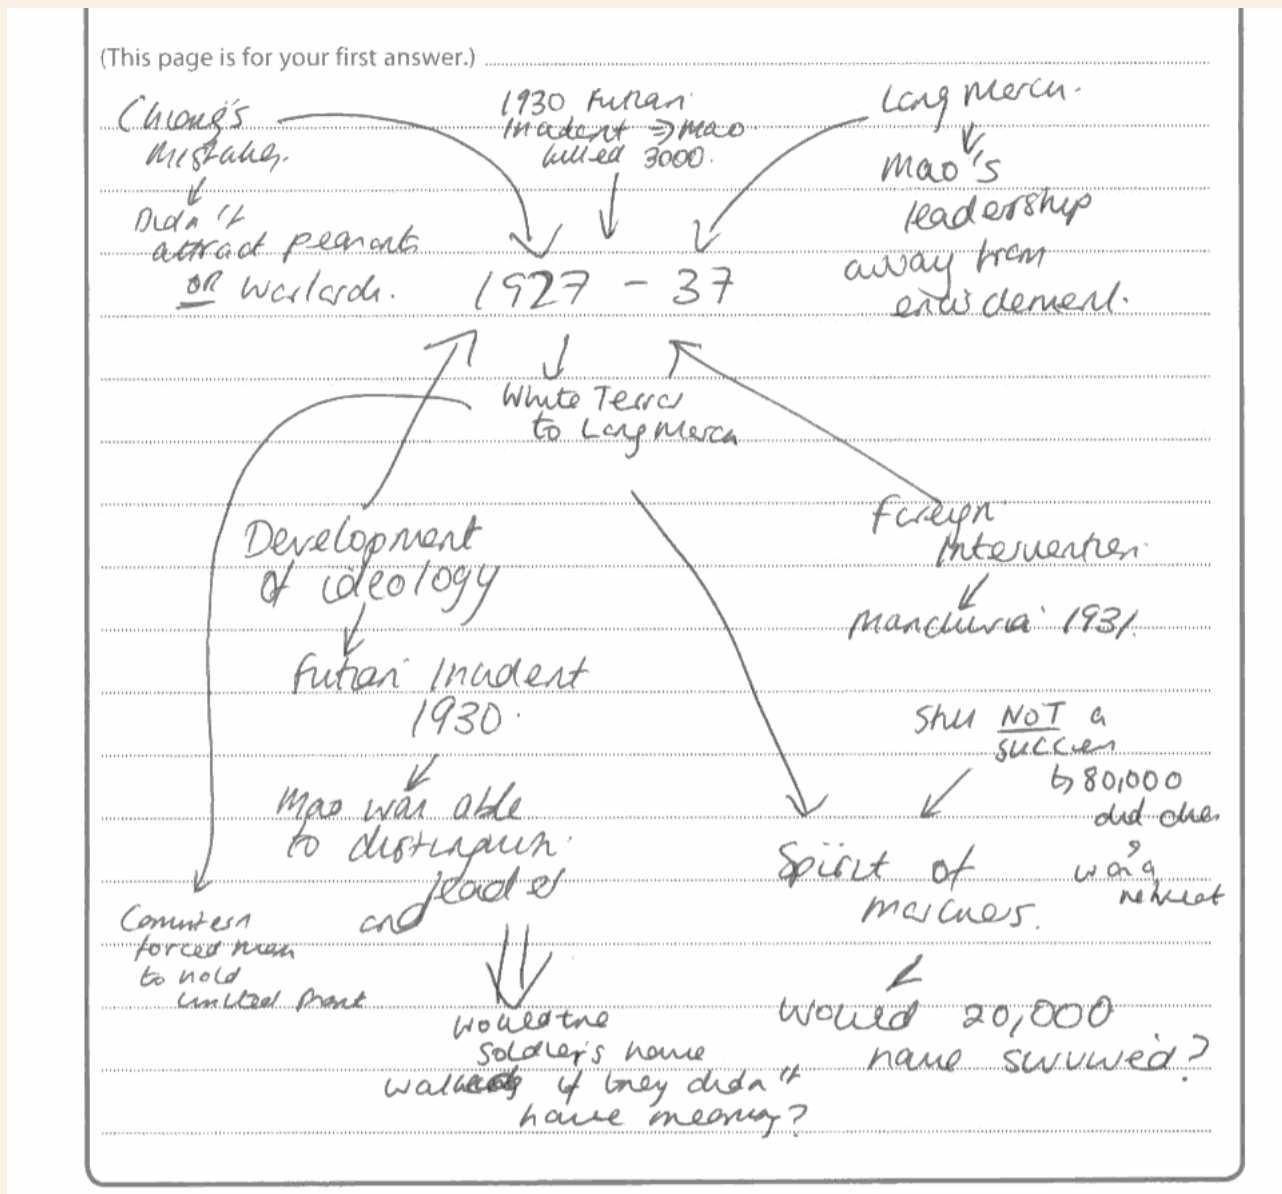 (This page is for your first answer.)
Chiang's
mistakes.
Didn't
attract peasants
OR warlords.
1930 Futian
Incident => Mao
killed 3000.
Long March.
Mao's
leadership
away from
encirclement.
1927 - 37
White Terror
to Long March
Development
of ideology
Futian Incident
1930.
Mao was able
to distinguish
and leader
Comintern
forced them
to hold
united front
would the
soldier's have
walked if they didn't
have meaning?
Foreign
Intervention
Manchuria 1931.
Still NOT a
success
↳ 80,000
did die.
was a
retreat
Spirit of
marchers.
Would 20,000
have survived?